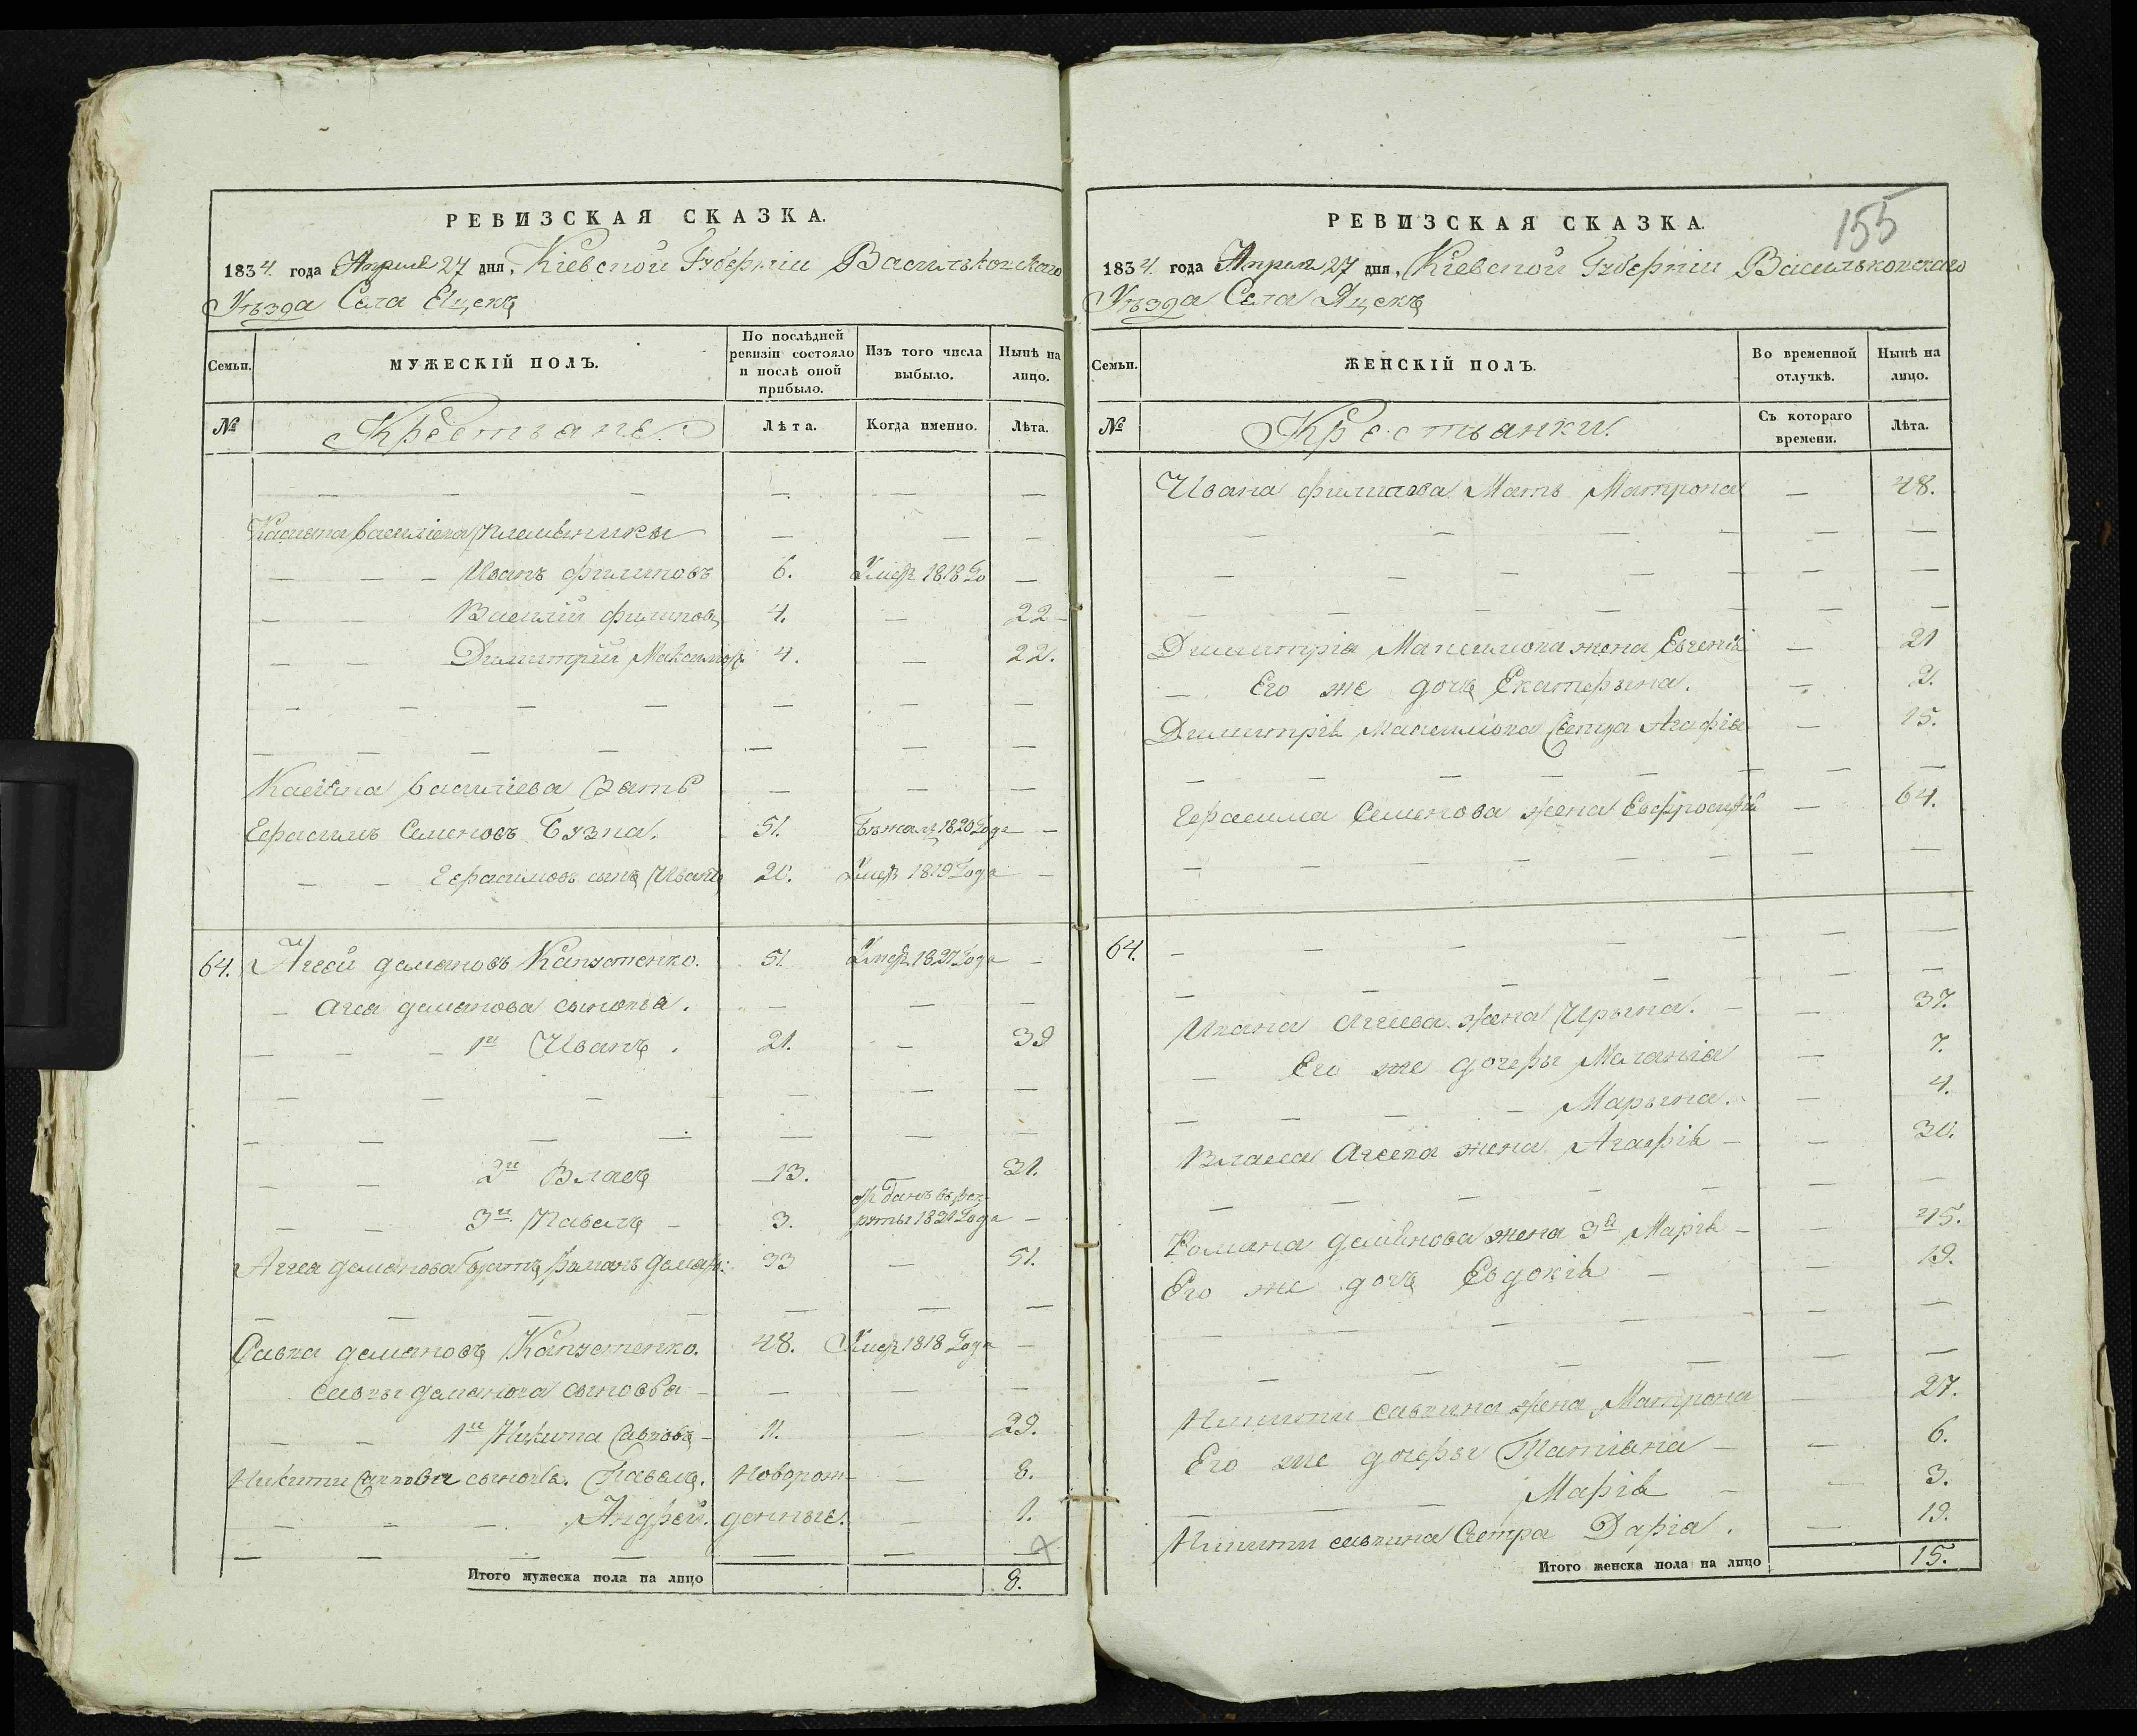 РЕВИЗСКАЯ СКАЗКА.
1834. года Апреля 27 дня, Кіевской Губерніи Васильковскаго
Уѣзда Села Яцекъ
Семьи.
МУЖЕСКІЙ ПОЛЪ.
По послѣдней ревизіи состояло и послѣ оной прибыло.
Изъ того числа выбыло.
Нынѣ на лицо.
№
Крестьяне.
Лѣта.
Когда именно.
Лѣта.
— — — — — —
Касіяна Василіева племѣники — — —
— — — Иванъ филиповъ 6. Умеръ 1818 Го —
— — Василій филиповъ 4. — 22
— — Димитрій Максимовъ 4. — 22.
— — — — — — —
— — — — — — —
Касіяна василіева зять — — —
Герасимъ Семеновъ Бузна. 51. Бѣжалъ 1820 Года —
— — Герасимовъ сынъ Иванъ 20. Умеръ 1819 Года —
64. Агей демяновъ Капустенко. 51. Умеръ 1827 Года —
— Агея демянова сыновья. — — —
— — — 1й Иванъ. 21. — 39
— — — — — —
— — — — — — —
— — 2й Власъ 13. — 31.
— — 3й Павелъ — 3. отданъ въ рек-
руты 1821 Года —
Аггея демянова братъ, Романъ демян: 33 — 51.
— — — — — — —
Савка демяновъ Капустенко. 48. Умеръ 1818 Года —
Савки демянова сыновья — — — —
— — 1й Никита Савковъ — 11. — 29.
Никити Савкова сыновья. Павелъ. Новорож- — 8.
— — — Андрей. денные. — 1.
— — — — — — —
Итого мужеска пола на лицо 8.
РЕВИЗСКАЯ СКАЗКА.
155
1834. года Апреля 27 дня, Кіевской Губерніи Васильковскаго
Уѣзда Села Яцекъ
Семьи.
ЖЕНСКІЙ ПОЛЪ.
Во временной отлучкѣ.
Нынѣ на лицо.
№
Крестьянки.
Съ котораго времени.
Лѣта.
Ивана филипова Мать Матрона — 48.
— — — — —
— — — — — —
— — — — — —
Димитрія Максимова жена Евгенія — 21
— Его же дочь Екатерына. — 2.
Димитрія Максимова Сестра Агафія — 15.
— — — — — — — —
Герасима Семенова жена Евфросинія — 64.
— — — — — — —
64. — — — — — — —
— — — — — —
Ивана Аггеева жена Ирына. — — 37.
— Его же дочеры Маланія — 7.
— — — — Марына. — 4.
Власа Агеева жена Агафія — — 30.
— — — — — — —
Романа демянова жена 3я Марія — — 45.
Его же дочь Евдокія — — 19.
— — — — — — —
— — — — — — —
Никити савкина жена Матрона — 27.
Его же дочеры Татіана — — 6.
— — Марія — — 3.
Никити савкина Сестра Дарія. — 19.
Итого женска пола на лицо 15.